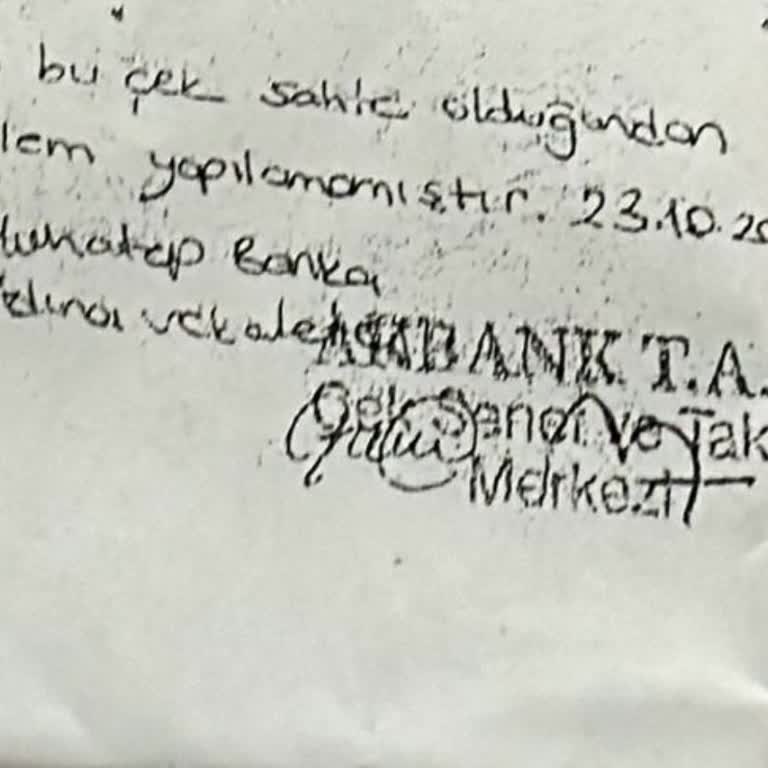 bu çek sahte olduğundan
lem yapılamamıştır. 23.10.20
uhatap Banka
dına vekaleten
BANK T.A.
Çek Senet ve Tak
Merkezi